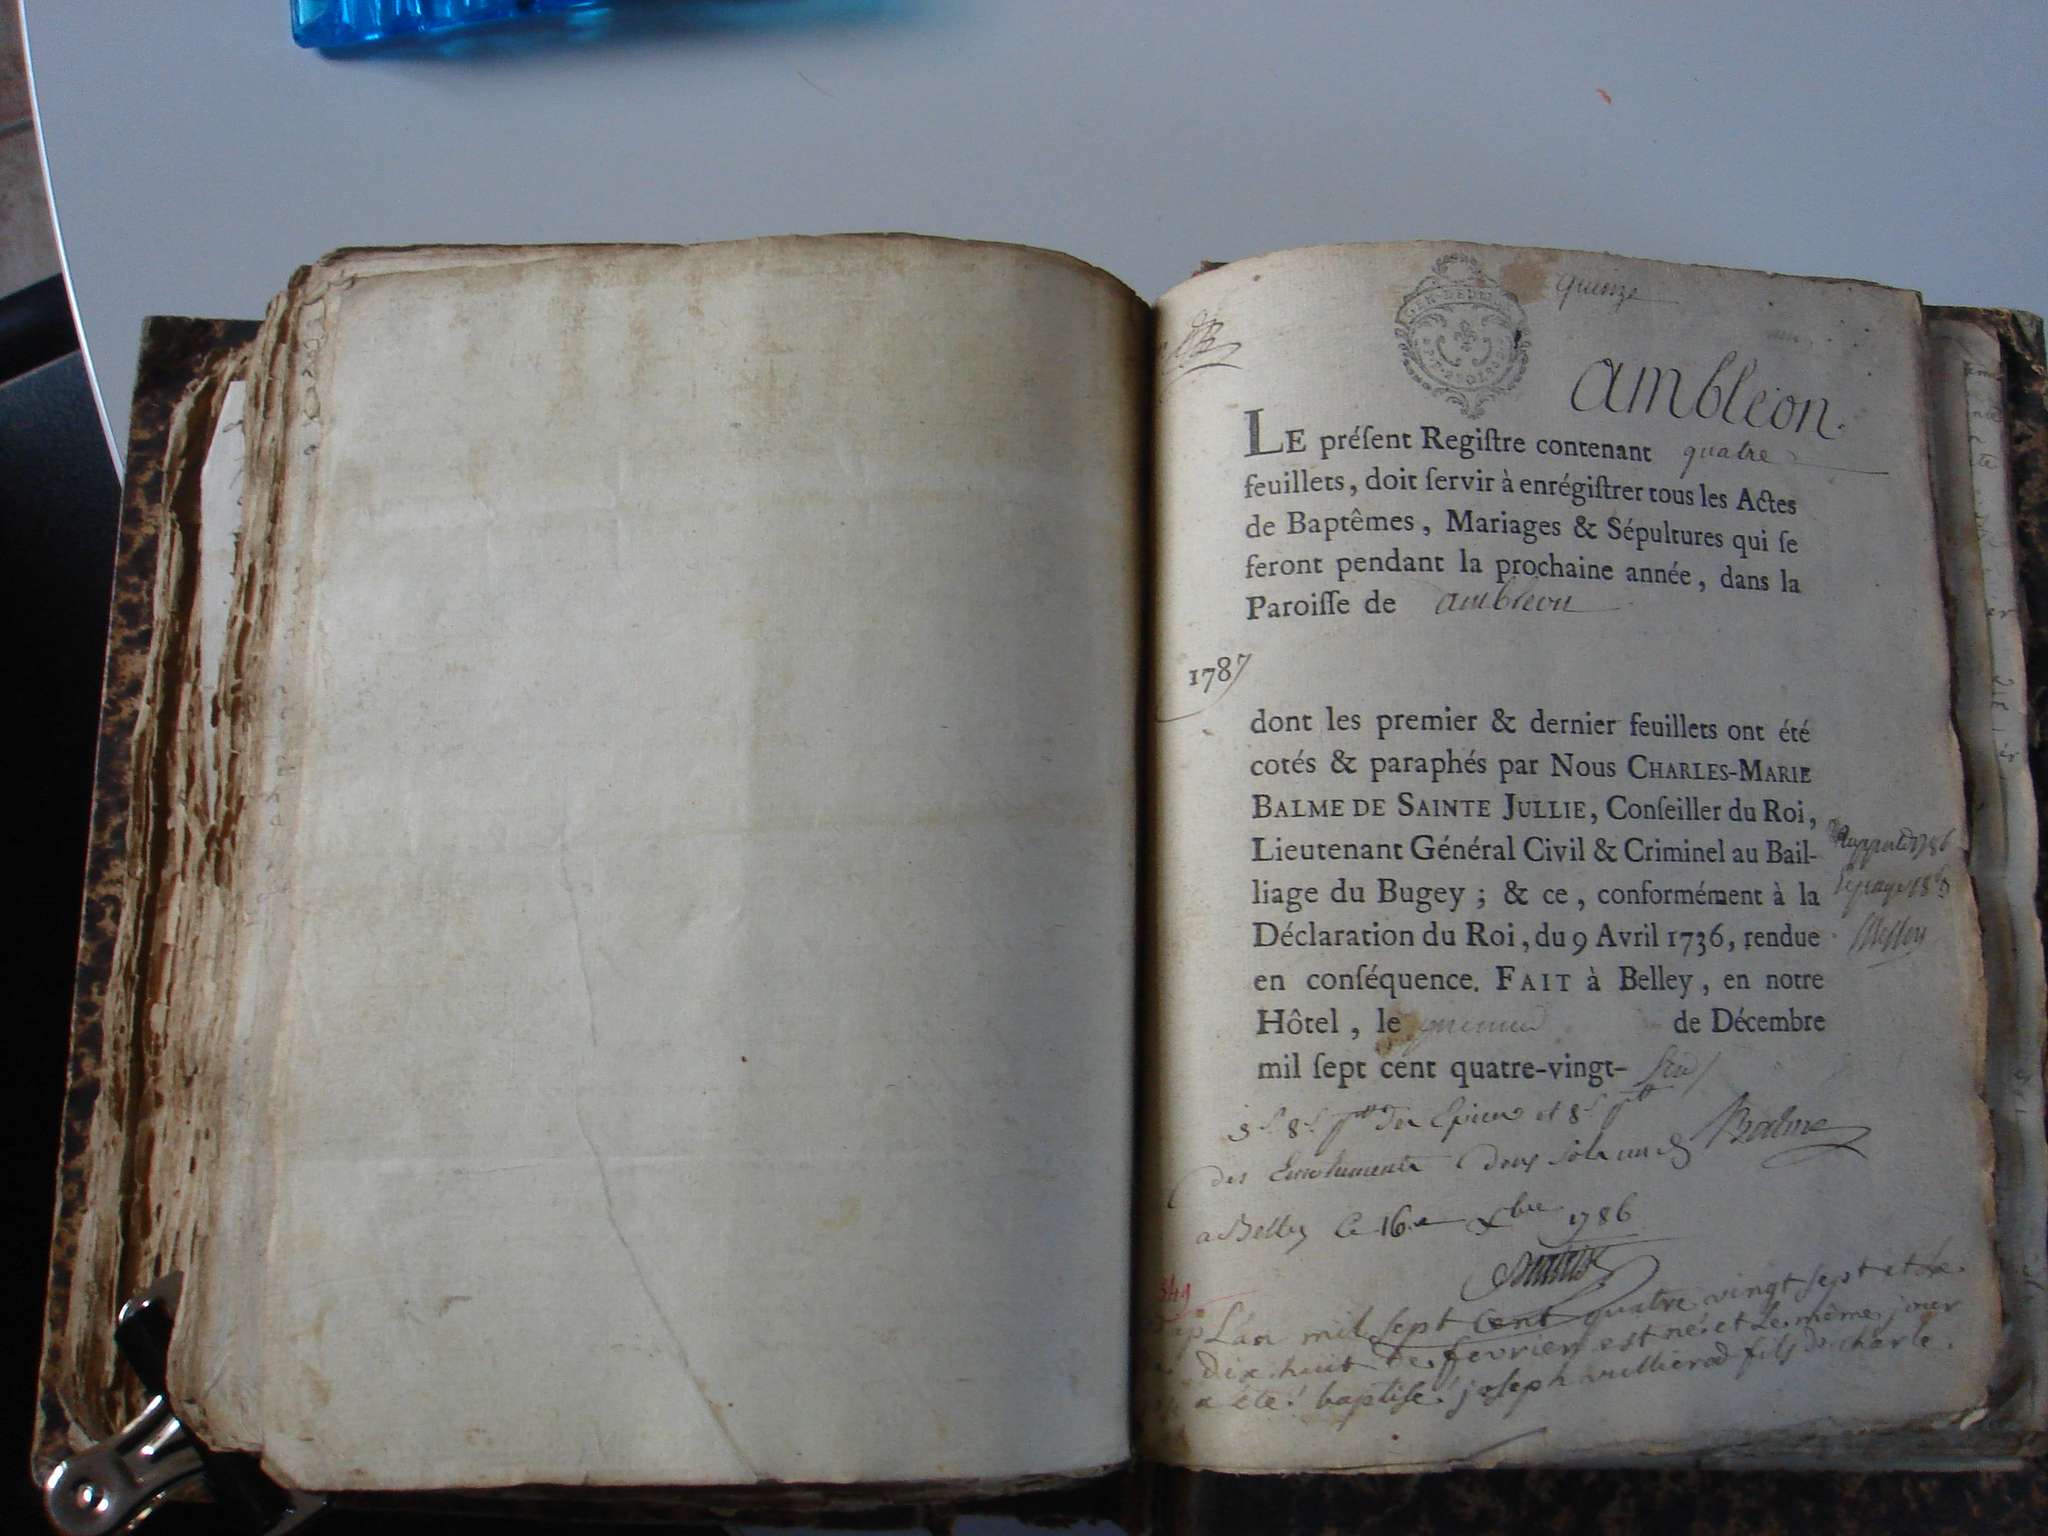 quinze
ambléon.
LE préſent Regiſtre contenant quatre
feuillets, doit ſervir à enrégiſtrer tous les Actes
de Baptêmes, Mariages & Sépultures qui ſe
feront pendant la prochaine année, dans la
Paroiſſe de ambléon
1787
dont les premier & dernier feuillets ont été
cotés & paraphés par Nous CHARLES-MARIE
BALME DE SAINTE JULLIE, Conſeiller du Roi,
Lieutenant Général Civil & Criminel au Bail-
liage du Bugey ; & ce, conformément à la
Déclaration du Roi, du 9 Avril 1736, rendue
en conſéquence. FAIT à Belley, en notre
Hôtel, le premier de Décembre
mil ſept cent quatre-vingt-
Balme
des Emoluments
a Belley le 16 xbre 1786
L'an mil sept cent quatre vingt sept et le
dix huit de fevrier est né et le même jour
a été baptisé joseph vullierod fils de charle